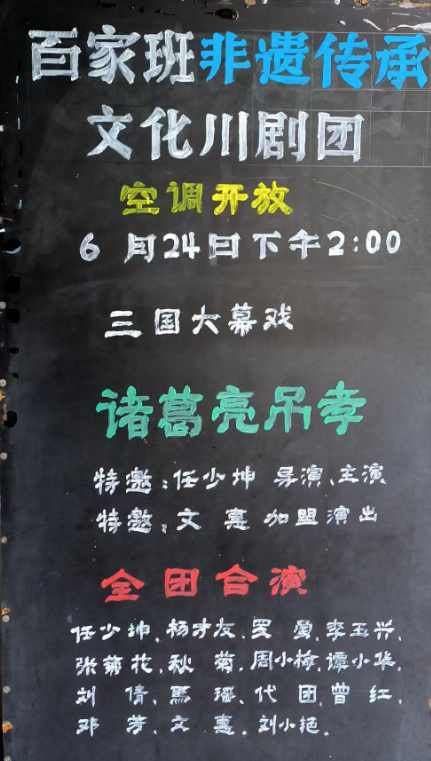 百家班非遗传承
文化川剧团
空调开放
6月24日下午2:00
三国大幕戏
诸葛亮吊孝
特邀:任少坤 导演、主演
特邀:文 惠 加盟演出
全团合演
任少坤、杨才友、罗 勇、李玉兴、
张菊花、秋 菊、周小梅、谭小华、
刘 倩、馬 瑶、代 团、曾 红、
邓 芳、文 惠、刘小艳、